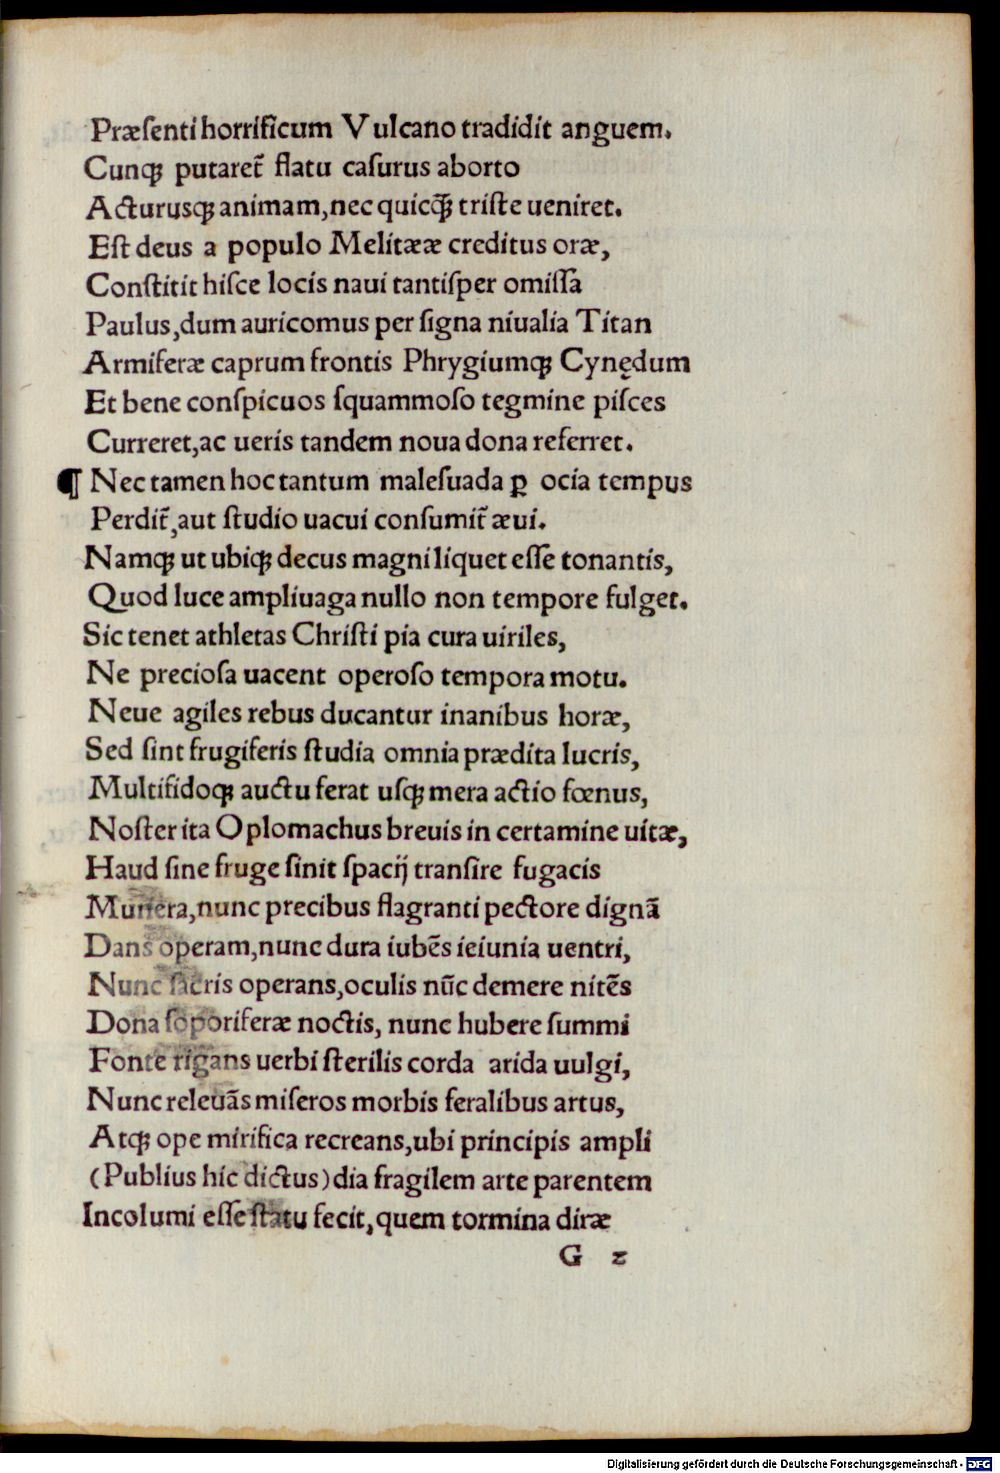 Præſenti horrificum Vulcano tradidit anguem.
Cunqꝫ putaret᷑ flatu caſurus aborto
Acturusqꝫ animam, nec quicqꝫ̃ triſte ueniret.
Eſt deus a populo Melitææ creditus oræ,
Conſtitit hiſce locis naui tantiſper omiſſa
Paulus, dum auricomus per ſigna niualia Titan
Armiferæ caprum frontis Phrygiumqꝫ Cynędum
Et bene conſpicuos ſquammoſo tegmine piſces
Curreret, ac ueris tandem noua dona referret.
¶ Nec tamen hoc tantum maleſuada ꝑ ocia tempus
Perdit᷑, aut ſtudio uacui conſumit᷑ æui.
Namqꝫ ut ubiqꝫ decus magni liquet eſſe tonantis,
Quod luce ampliuaga nullo non tempore fulget.
Sic tenet athletas Chriſti pia cura uiriles,
Ne precioſa uacent operoſo tempora motu.
Neue agiles rebus ducantur inanibus horæ,
Sed ſint frugiferis ſtudia omnia prædita lucris,
Multifidoqꝫ auctu ferat uſqꝫ mera actio fœnus,
Noſter ita Oplomachus breuis in certamine uitæ,
Haud ſine fruge ſinit ſpacij tranſire fugacis
Munera, nunc precibus flagranti pectore dignā
Dans operam, nunc dura iubēs ieiunia uentri,
Nunc ſacris operans, oculis nūc demere nitēs
Dona ſoporiferæ noctis, nunc hubere ſummi
Fonte rigans uerbi ſterilis corda arida uulgi,
Nunc releuās miſeros morbis feralibus artus,
Atqꝫ ope mirifica recreans, ubi principis ampli
(Publius hic dictus) dia fragilem arte parentem
Incolumi eſſe ſtatu fecit, quem tormina diræ
G 2
Digitalisierung gefördert durch die Deutsche Forschungsgemeinschaft - DFG